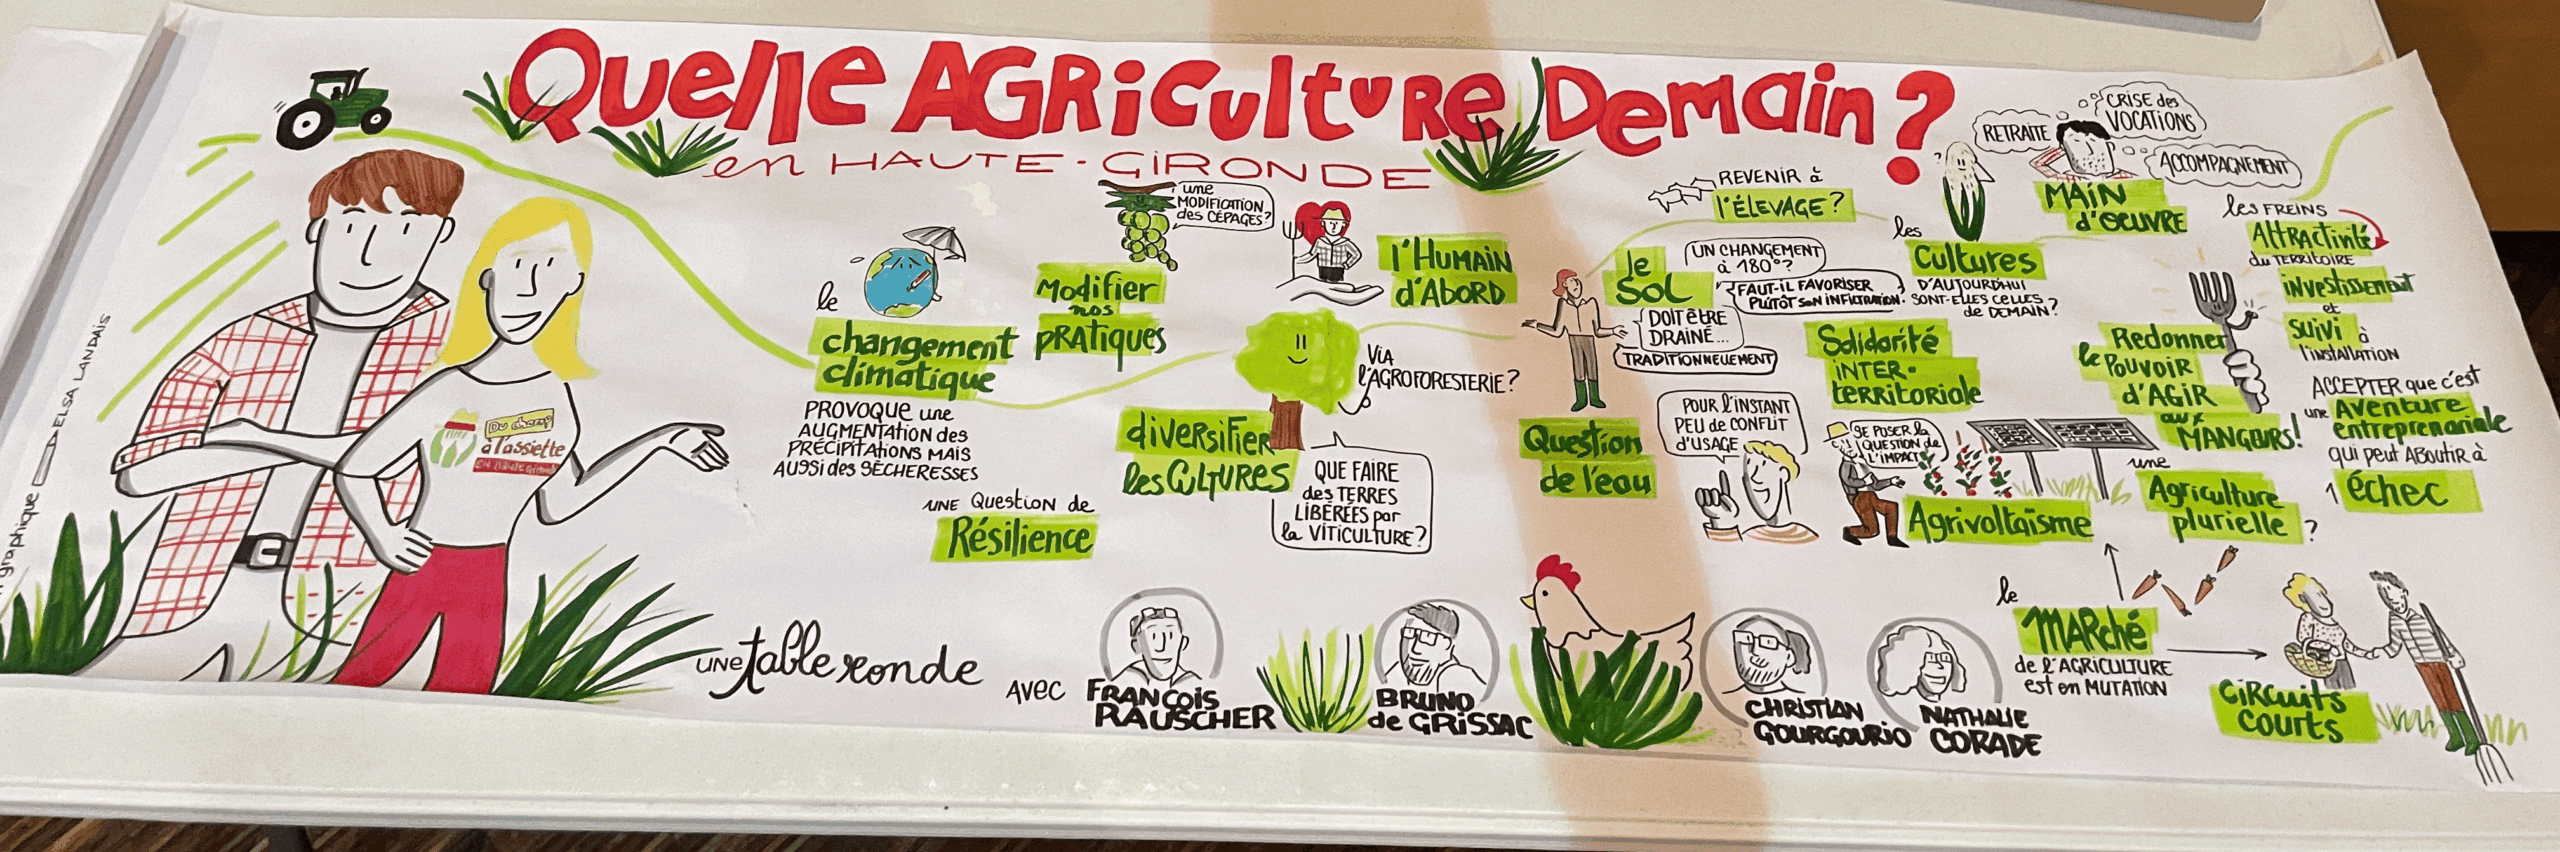 Quelle AGRiculture Demain ?
en HAUTE-GIRONDE
graphique
ELSA LANDAIS
Du champ
à l'assiette
le
changement
climatique
PROVOQUE une
AUGMENTATION des
PRÉCIPITATIONS MAIS
AUSSI des SÈCHERESSES
UNE Question de
Résilience
Modifier
nos
PRATIQUES
une
MODIFICATION
des CÉPAGES?
l'HUMAIN
d'ABORD
diversifier
les CULTURES
Via
l'AGROFORESTERIE ?
QUE FAIRE
des TERRES
LIBÉRÉES par
la VITICULTURE?
REVENIR à
l'ÉLEVAGE ?
le
SOL
UN CHANGEMENT
à 180°?
FAUT-IL FAVORISER
PLUTÔT SON INFILTRATION.
DOIT ÊTRE
DRAINÉ...
TRADITIONNELLEMENT
Question
de l'eau
les
Cultures
D'AUJOURD'HUI
SONT-ELLES CELLES
de DEMAIN ?
RETRAITE
CRISE des
VOCATIONS
ACCOMPAGNEMENT
MAIN
d'OEUVRE
Solidarité
iNTER-
territoriale
POUR l'INSTANT
PEU de CONFLIT
d'USAGE
SE POSER la
QUESTION de
L'IMPACT
Agrivoltaïsme
Redonner
le POUVOIR
d'AGIR
aux
MANGEURS!
une
Agriculture
plurielle ?
les FREINS
Attractivité
du TERRITOIRE
investissement
et
suivi à
l'installation
ACCEPTER que c'est
une Aventure
entreprenariale
qui peut ABOUTIR à
1 échec
le
MARché
de l'AGRICULTURE
est en MUTATION
CiRcuits
courts
UNE table ronde
AVEC
FRANÇOIS
RAUSCHER
BRUNO
de GRISSAC
CHRISTIAN
GOURGOURIO
NATHALIE
CORADE